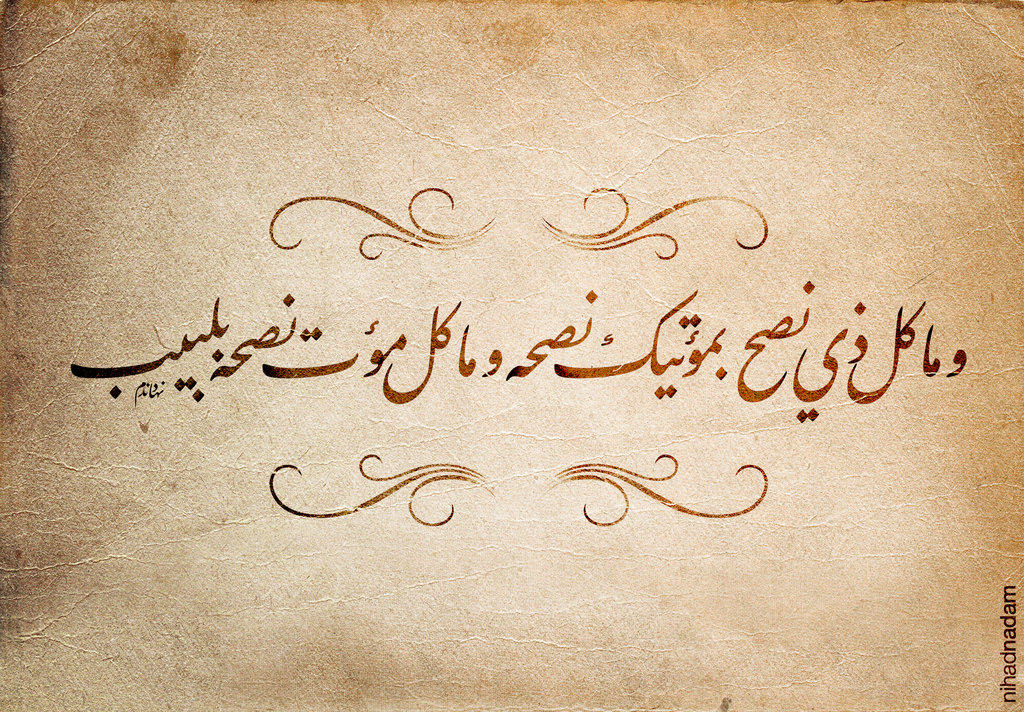 وما كل ذي نصح بمؤتيك نصحه وما كل مؤت نصحه بلبيب
نهاد ندام
nihadnadam